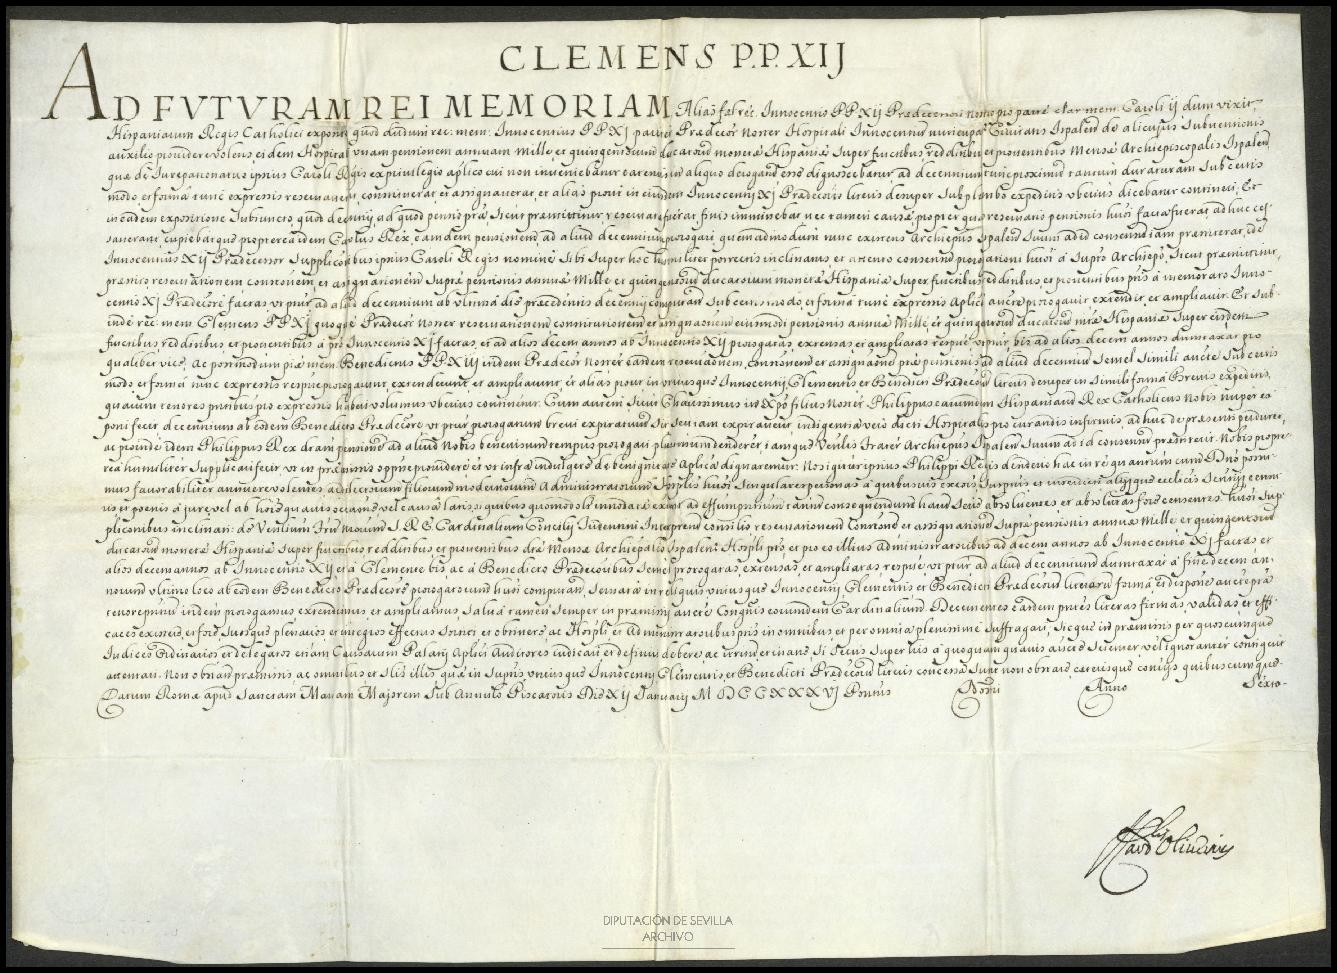 CLEMENS P.P. XIJ
AD FVTVRAM REI MEMORIAM Alias fel: rec. Innocentius PP. XIJ Prædecessori nostro pro parte clar: mem: Caroli ij dum vixit
Hispaniarum Regis Catholici exposito quod dudum rec: mem: Innocentius PP. XJ pariter Prædecor Noster Hospitali Innocentium nuncupato Civitatis Ispalen de alicujus subventionis
auxilio providere volens eidem Hospitali unam pensionem annuam Mille et quingentorum ducatorum monetæ Hispaniæ super fructibus redditibus et proventibus Mensæ Archiepiscopalis Ispalen
quæ de Jurepatronatus ipsius Caroli Regis ex privilegio aplico cui non invenibatur eatenus in aliquo derogatum esse dignoscebatur ad decennium tunc proximum tantum duraturam sub certis
modo et forma tunc expressis reservaverat constituerat et assignaverat, et alias prout in ejusdem Innocentij XJ Prædecoris literis desuper sub plombo expeditis uberius dicebatur contineri, Et
in eadem expositione subjuncto, quod decennij ad quod pensio præfata sicut præmittitur reservata fuerat, finis imminebat nec tamen causæ propter quas reservatio pensionis hujusmodi facta fuerat, adhuc ces-
saverant, cupiebatque propterea idem Carolus Rex eamdem pensionem ad aliud decennium prorogari quemadmodum tunc existens Archiepus Ispalen suum ad id consensum jam præstiterat, idem
Innocentius XIJ Prædecessor supplicationibus ipsius Caroli Regis nomine sibi super hoc humiliter porrectis inclinatus, et attento consensu prorogationi hujusmodi a supto Archiepo, sicut præmittitur,
præstito, reservationem constitutionem, et assignationem suptæ pensionis annuæ Mille et quingentorum ducatorum monetæ Hispaniæ super fructibus redditibus et proventibus ptis a memorato Inno-
centio XJ Prædecore factas ut ptur ad aliud decennium ab ultima die præcedentis decennij computandum sub certis modo et forma tunc expressis Aplica auctte prorogavit extendit, et ampliavit. Et sub-
inde rec: mem: Clemens PP. XJ quoque Prædecor Noster reservationem constitutionem et assignationem ejusmodi pensionis annuæ Mille et quingentorum ducatorum mtæ Hispaniæ super eisdem
fructibus redditibus et proventibus a pto Innocentio XJ factas, et ad alios decem annos ab Innocentio XIJ prorogatas, extensas et ampliatas respve ut ptur, bis ad alios decem annos dumtaxat pro
qualibet vice, Ac postmodum piæ mem: Benedictus PP. XIIJ itidem Prædecor Noster easdem reservationem, constitonem et assignationem ptæ pensionis ad aliud decennium semel simili auctte sub certis
modo et forma tunc expressis respve prorogarunt, extenderunt, et ampliarunt, et alias prout in utriusque Innocentij, Clementis et Benedicti Prædecorum literis desuper in simili forma Brevis expeditis,
quarum tenores ptntibus pro expressis haberi volumus uberius continetur. Cum autem sicut Charissimus in Xpo filius Noster Philippus earumdem Hispaniarum Rex Catholicus Nobis nuper ex-
poni fecit decennium ab eodem Benedicto Prædecore ut ptur prorogatum brevi expiraturum sit seu jam expiraverit, indigentia vero dicti Hospitalis pro curandis infirmis, ad huc de præsenti perduret,
ac proinde idem Philippus Rex dictam pensionem ad aliud Nobis benevisum tempus prorogari plurimum desideret, tamque Venlis Frater Archiepus Ispalen suum ad id consensum præstiterit. Nobis propte-
rea humiliter supplicari fecit ut in præmissis oppne providere et ut infra indulgere de benignitate Aplica dignaremur. Nos igitur ipsius Philippi Regis desiderio hac in re quantum cum Dno possu-
mus favorabiliter annuere volentes, ac dictorum filiorum modernorum Administratorum Hosplis hujusmodi singulares personas a quibusvis excois suspnis et interdicti alijsque eccliciis sentijs censu-
ris et poenis a jure vel ab hoīe quavis occasione vel causa latis, si quibus quomodolt innodatæ existunt ad effum ptntium tantum consequendum harum serie absolventes et absolutas fore censentes, hujusmodi sup-
plicationibus inclinati: de Venlium Frum Nrorum S. R. E. Cardinalium Concilij Tridentini Interprum consilio reservationem Constonem et assignationem suptæ pensionis annuæ Mille et quingentorum
ducatorum monetæ Hispaniæ super fructibus redditibus et proventibus dictæ Mensæ Archiepalis Ispalen: Hospli pto, et pro eo illius Administratoribus ad decem annos ab Innocentio XJ factas et
alios decem annos ab Innocentio XIJ et a Clemente bis, ac a Benedicto Prædecoribus semel prorogatas, extensas, et ampliatas respve ut ptur ad aliud decennium dumtaxat a fine decem an-
norum ultimo loco ab eodem Benedicto Prædecore prorogatorum hujusmodi computandum, servata in reliquis utriusque Innocentij Clementis et Benedicti Prædecorum literarum forma et dispone auctte præta
tenore ptntium itidem prorogamus extendimus et ampliamus. Salva tamen semper in præmissis auctte Congnis eorumdem Cardinalium. Decernentes easdem pntes literas firmas, validas et effi-
caces existere, et fore, suosque plenarios et integros effectus sortiri, et obtinere ac Hospli et Administratoribus ptis in omnibus et per omnia plenissime suffragari, sicque in præmissis per quoscumque
Judices ordinarios et delegatos etiam Causarum Palatij Aplici Auditores judicari et definiri debere, ac irritum et inane si secus super his a quoquam quavis auctte scienter vel ignoranter contigerit
attentari. Non obstantibus præmissis ac omnibus et illis illis quæ in suptis utriusque Innocentij, Clementis, et Benedicti Prædecorum literis concessa sunt non obstare, ceterisque contrijs quibuscumque.
Datum Romæ apud Sanctam Mariam Majorem sub Annulo Piscatoris Die XIJ Januarij MDCCXXXVJ Pontus Nostri Anno Sexto.
DIPUTACIÓN DE SEVILLA
ARCHIVO